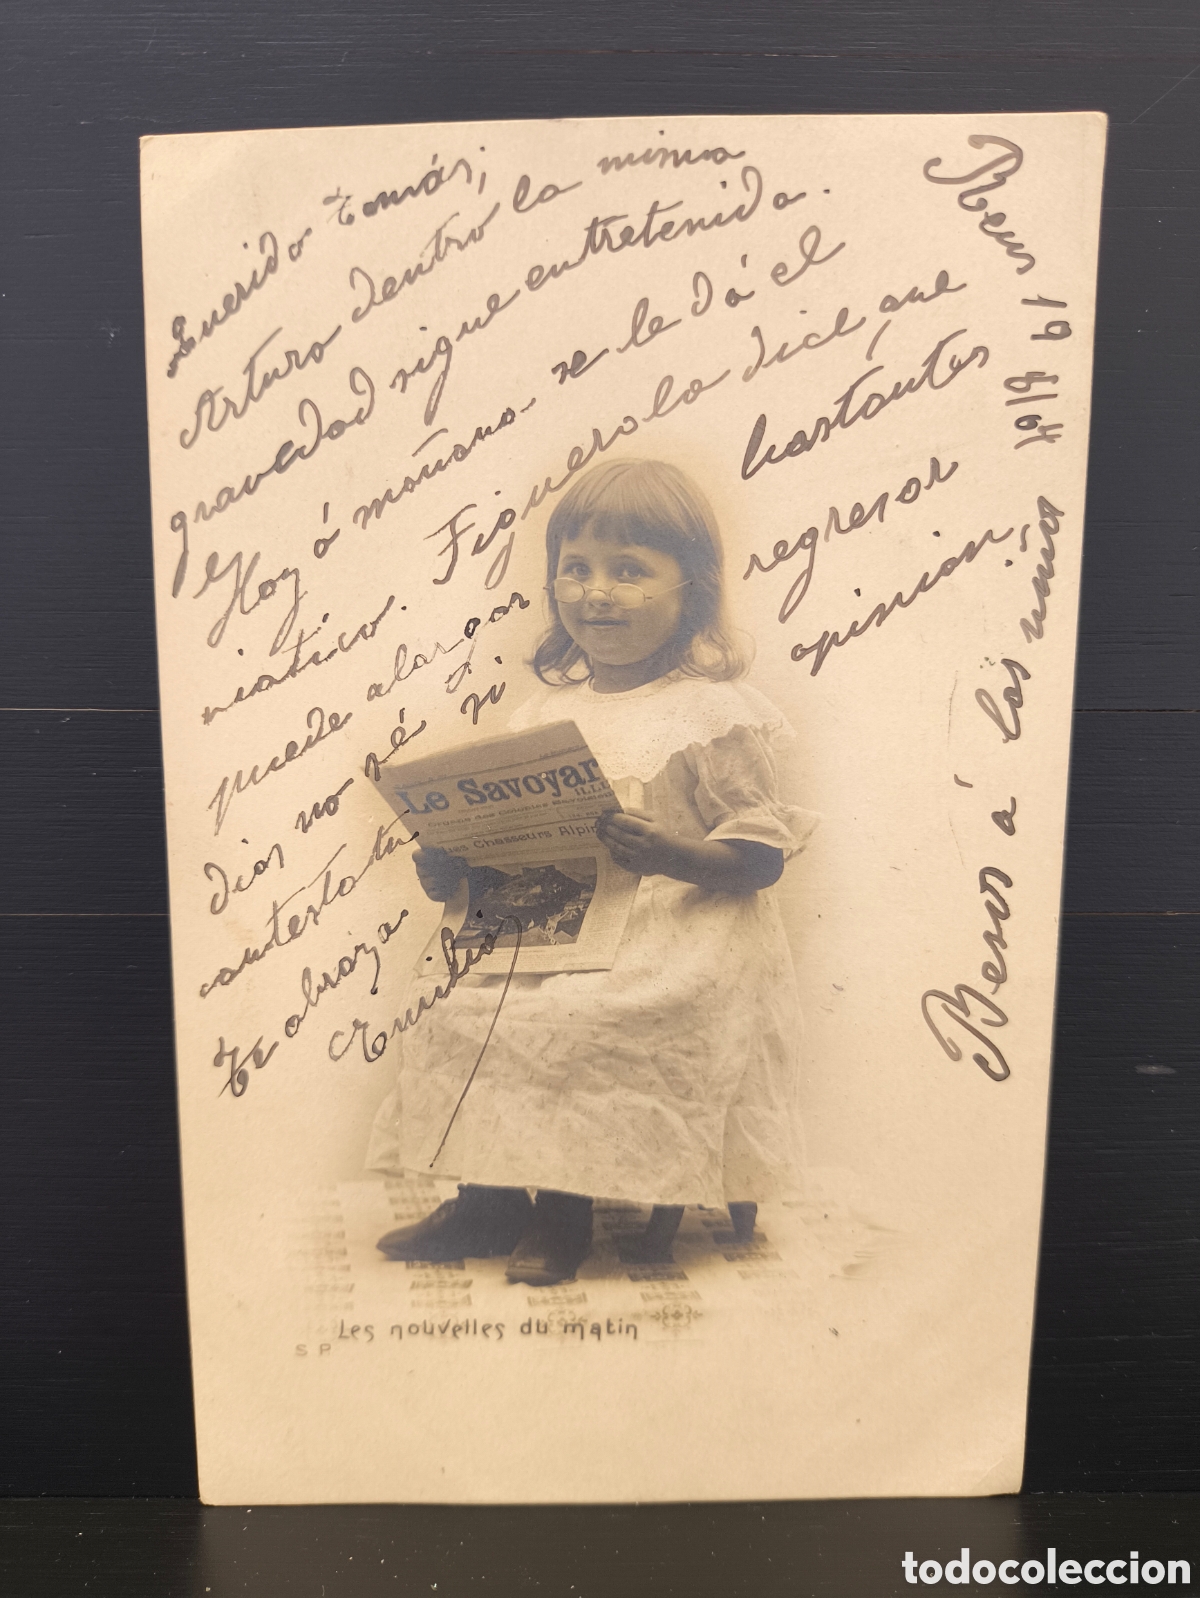 Reus 19 9/904
Querido Tomás;
Arturo dentro la misma
gravedad sigue entretenido.
Hoy á mañana se le dá el
viático. Figuerola dice, que
puede alargar bastantes
dias no sé si regresar
contesta tu opinion,
Te abraza
Emilio
Besos á los niños
Le Savoyard
ILLU
Organe des Colonies Savoisiennes
Les Chasseurs Alpins
Les nouvelles du matin
S P
todocoleccion